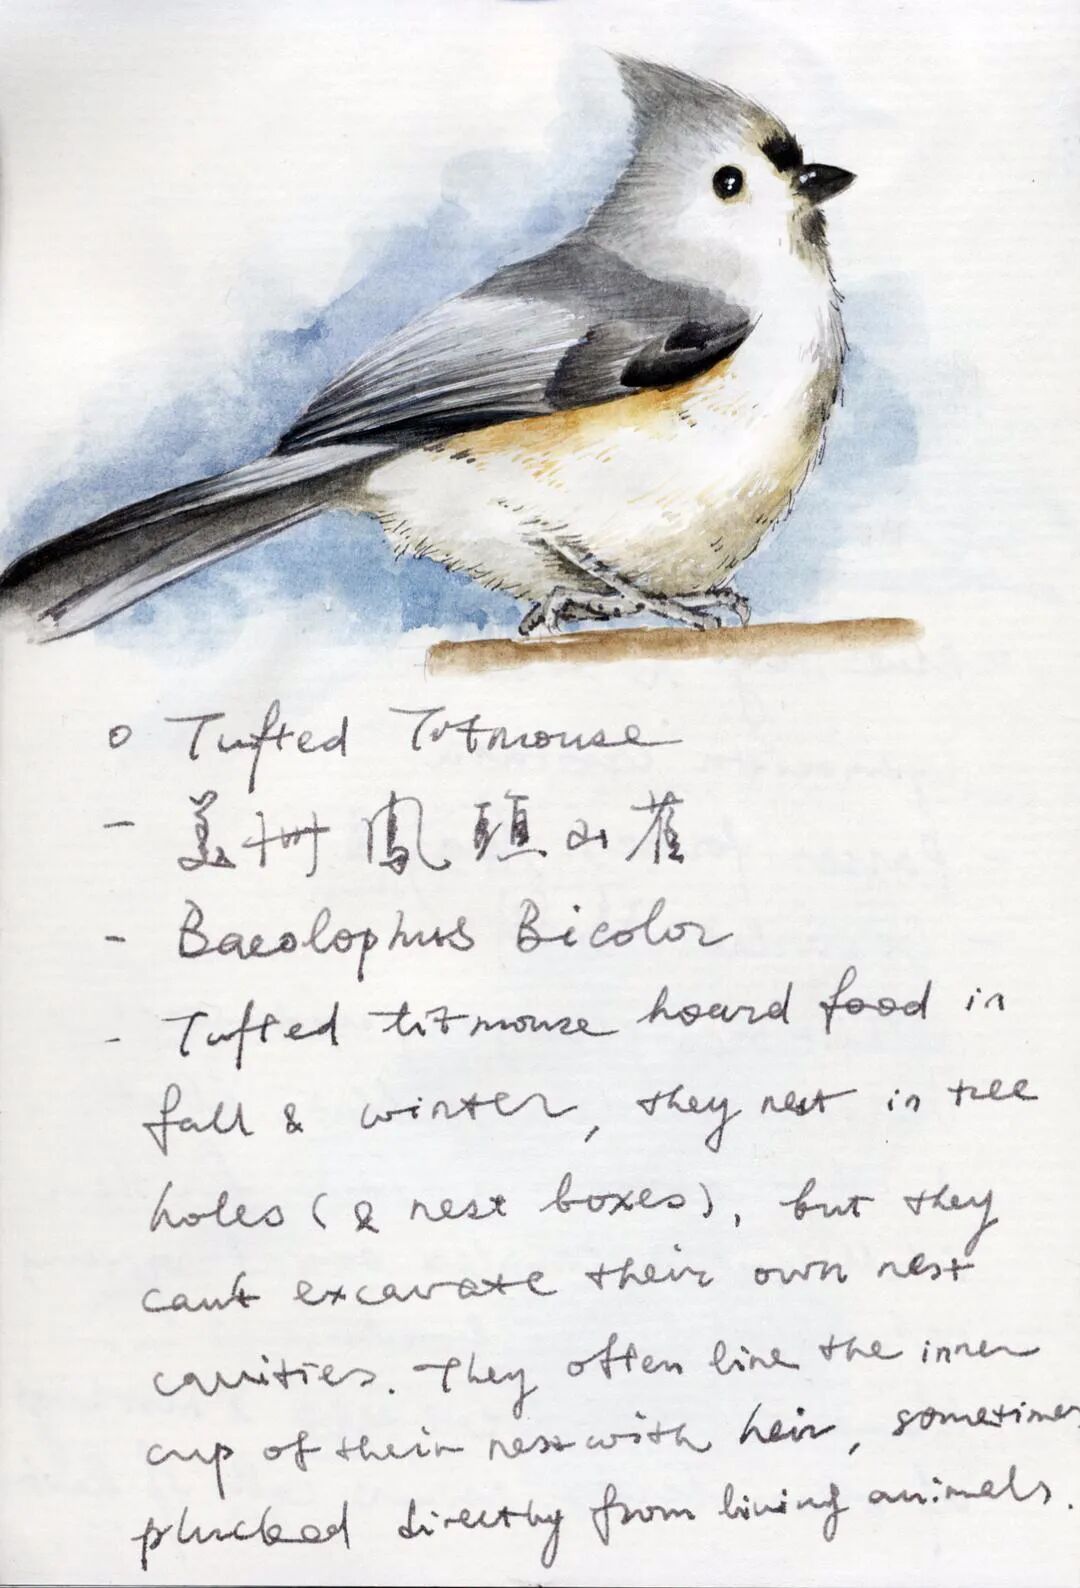 o Tufted Titmouse
- 美州鳳頭山雀
- Baeolophus Bicolor
- Tufted titmouse hoard food in
fall & winter, they nest in tree
holes (& nest boxes), but they
can't excavate their own nest
cavities. They often line the inner
cup of their nest with hair, sometimes
plucked directly from living animals.